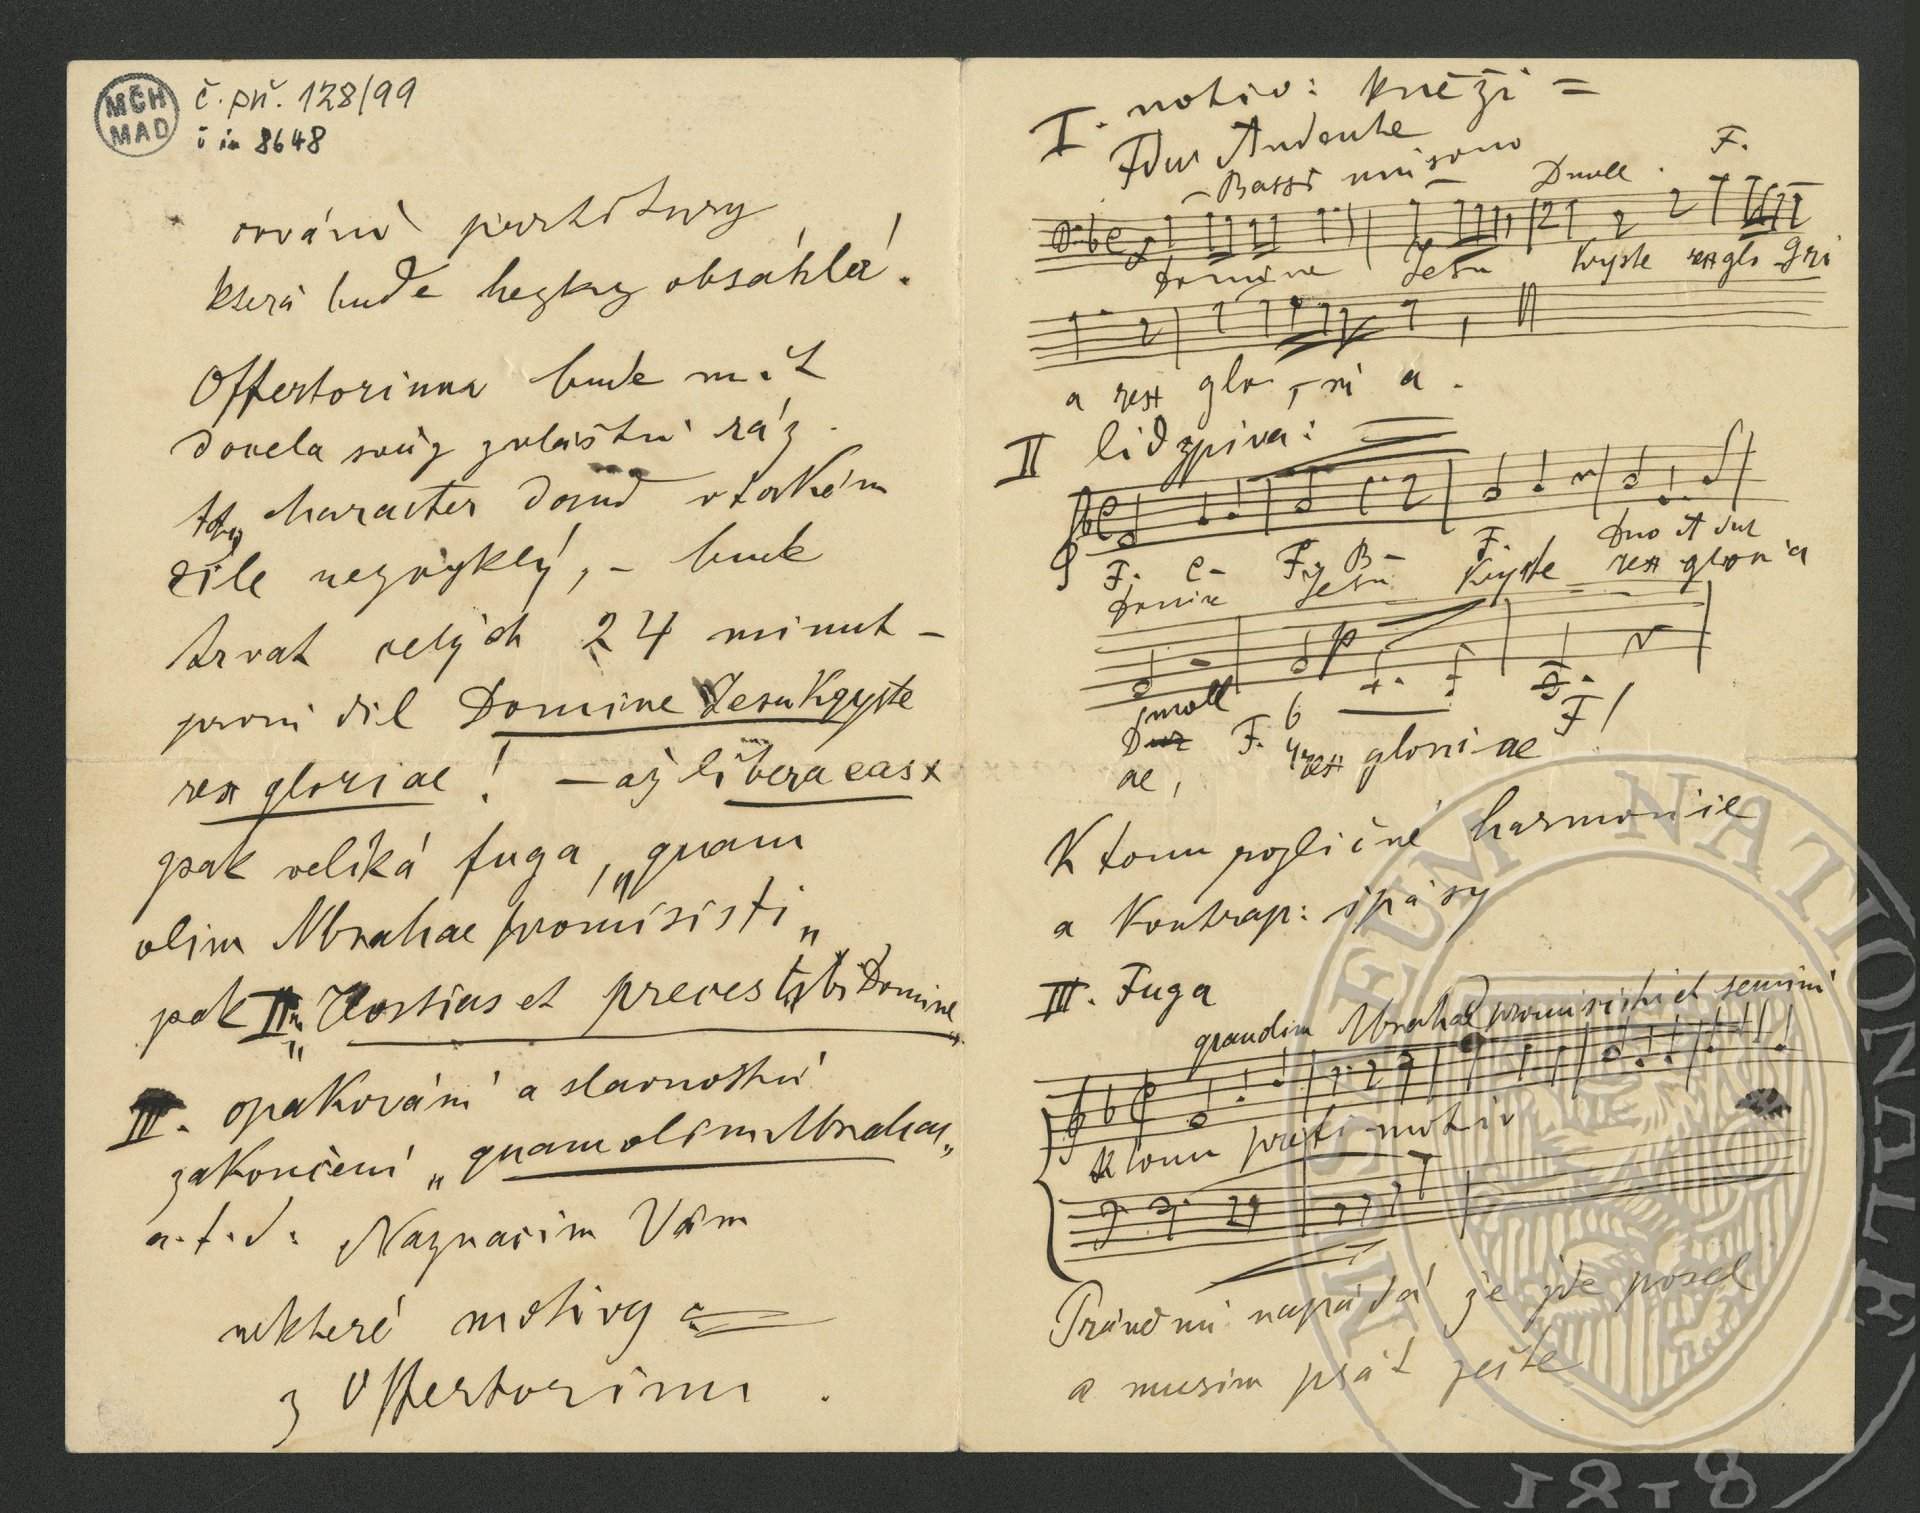 MČH
MAD
č. př. 128/99
č in 8648
ování partitury
která bude hezky obsáhlá.
Offertorium bude mít
docela svůj zvláštní ráz.
character dosud v takém
díle nezvyklý, – bude
trvat celých 24 minut –
první díl Domine Jesu Kryste
rex gloriae! – až libera eas x
pak veliká fuga, „quam
olim Abrahae promisisti„
pak II. „Hostias et preces tibi Domine„
III. opakování a slavnostní
zakončení „quam olim Abrahae„
a.t.d. Naznačím Vám
některé motivy =
z Offertorium.
I. motiv: kněží =
F dur Andante
– Bassi unisono – D moll. F.
Domine Jesu Kryste rex glo gri
a rex glo – ri a.
II lid zpívá:
F. C – F. B – F.
Domine Jesu Kryste rex gloria
D moll
F. 6 F
ae, 4 rex gloriae
K tomu rozličné harmonie
a Kontrap: špásy
III. Fuga
quam olim Abrahae promisisti et semini
K tomu proti motiv
Právě mi napadá že jde posel
a musím psát ještě
MUSEUM NATIONALE
1818